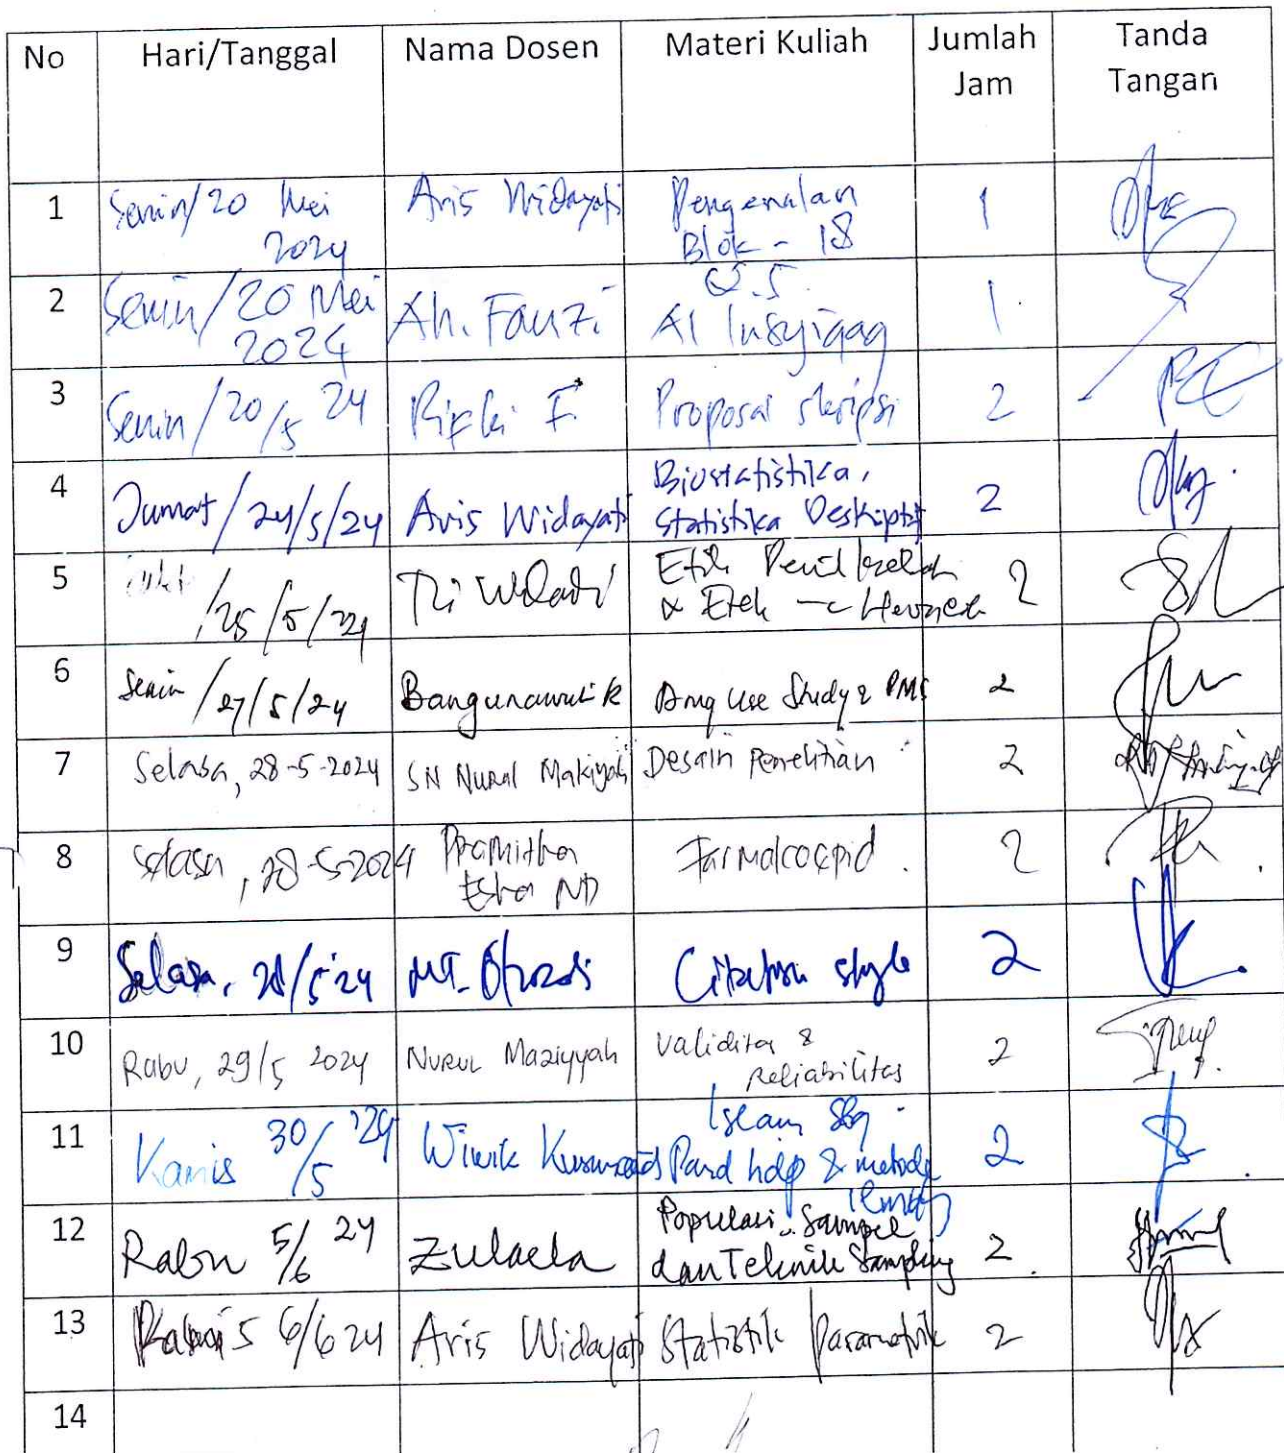 No Hari/Tanggal Nama Dosen Materi Kuliah Jumlah Jam Tanda Tangan
1 Senin/20 Mei 2024 Aris Widayati Pengenalan Blok - 18 1
2 Senin/20 Mei 2024 Ah. Fauzi Q.S. Al Insyiqaq 1
3 Senin/20/5 24 Rifki F. Proposal skripsi 2
4 Jumat/24/5/24 Aris Widayati Biostatistika, Statistika Deskiptif 2
5 /25/5/24 Tri Wulandari Etik 2
6 Senin/27/5/24 Bangunawati R Drug Use Study & PMS 2
7 Selasa, 28-5-2024 SN Nurul Makiyah Desain Penelitian 2
8 Selasa, 28-5-2024 Pramitha Esha ND Farmakoepid. 2
9 Selasa, 28/5'24 Citation style 2
10 Rabu, 29/5 2024 Nurul Maziyyah Validitas & Reliabilitas 2
11 Kamis 30/5 '24 Wiwik Kusumawati Islam sbg Pand hdp & metode ilmiah 2
12 Rabu 5/6 24 Zulaela Populasi, Sampel dan Teknik Sampling 2
13 Kamis 6/6 24 Aris Widayati Statistik Parametrik 2
14